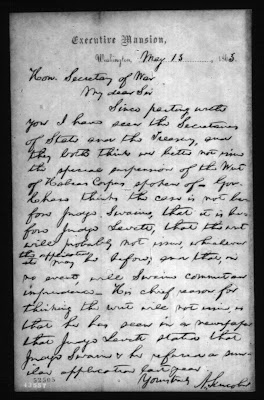 Executive Mansion,
Washington, May 13, 1863.
Hon. Secretary of War
My dear Sir
Since parting with
you I have seen the Secretaries
of State and the Treasury, and
they both think we better not issue
the special suspension of the Writ
of Habeas Corpus spoken of. Gov.
Chase thinks the case is not be-
fore Judge Swaine, that it is be-
fore Judge Levett, that the writ
will probably not issue, whichever
the application
it may be before, and that, in
no event, will Swaine commit an
imprudence. His chief reason for
thinking the writ will not issue, is
that he has seen in a newspaper
that Judge Levett stated that
Judge Swaine & he refused a simi-
lar application last year.
Yours truly A. Lincoln